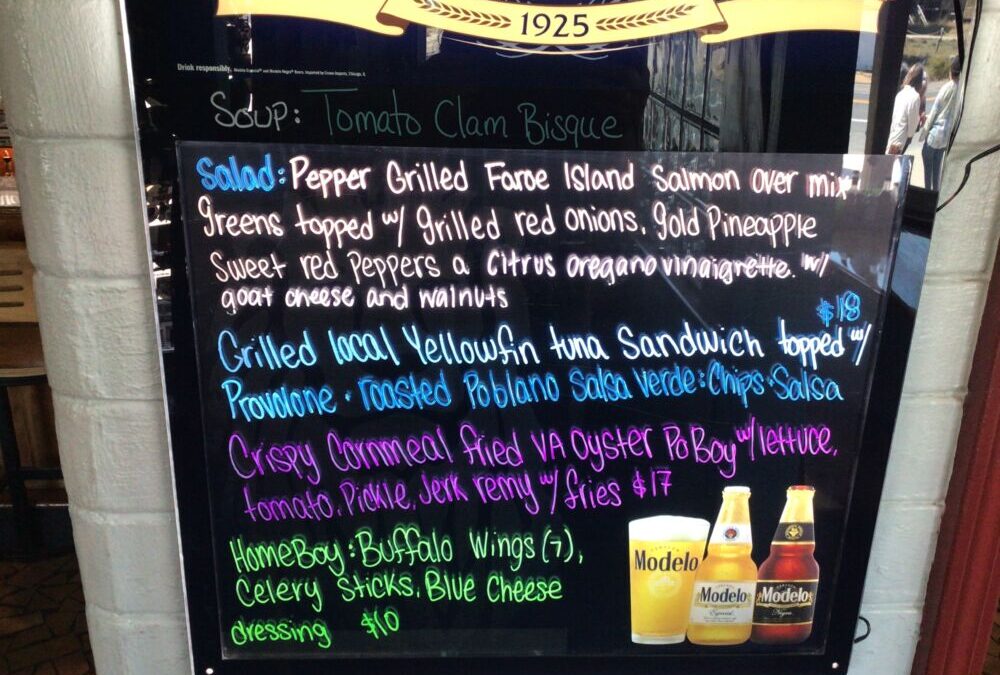 1925
Drink responsibly.
Soup: Tomato Clam Bisque
Salad: Pepper Grilled Faroe Island Salmon over mix
greens topped w/ grilled red onions, gold Pineapple
Sweet red Peppers a citrus oregano vinaigrette. w/
goat cheese and walnuts
$18
Grilled local Yellowfin tuna Sandwich topped w/
Provolone · roasted Poblano Salsa Verde: Chips · Salsa
Crispy Cornmeal fried VA Oyster Po Boy w/ lettuce,
tomato, Pickle, Jerk remy w/ fries $17
HomeBoy: Buffalo Wings (7),
Celery Sticks, Blue Cheese
dressing $10
Modelo
Modelo
Especial
Modelo
Negra